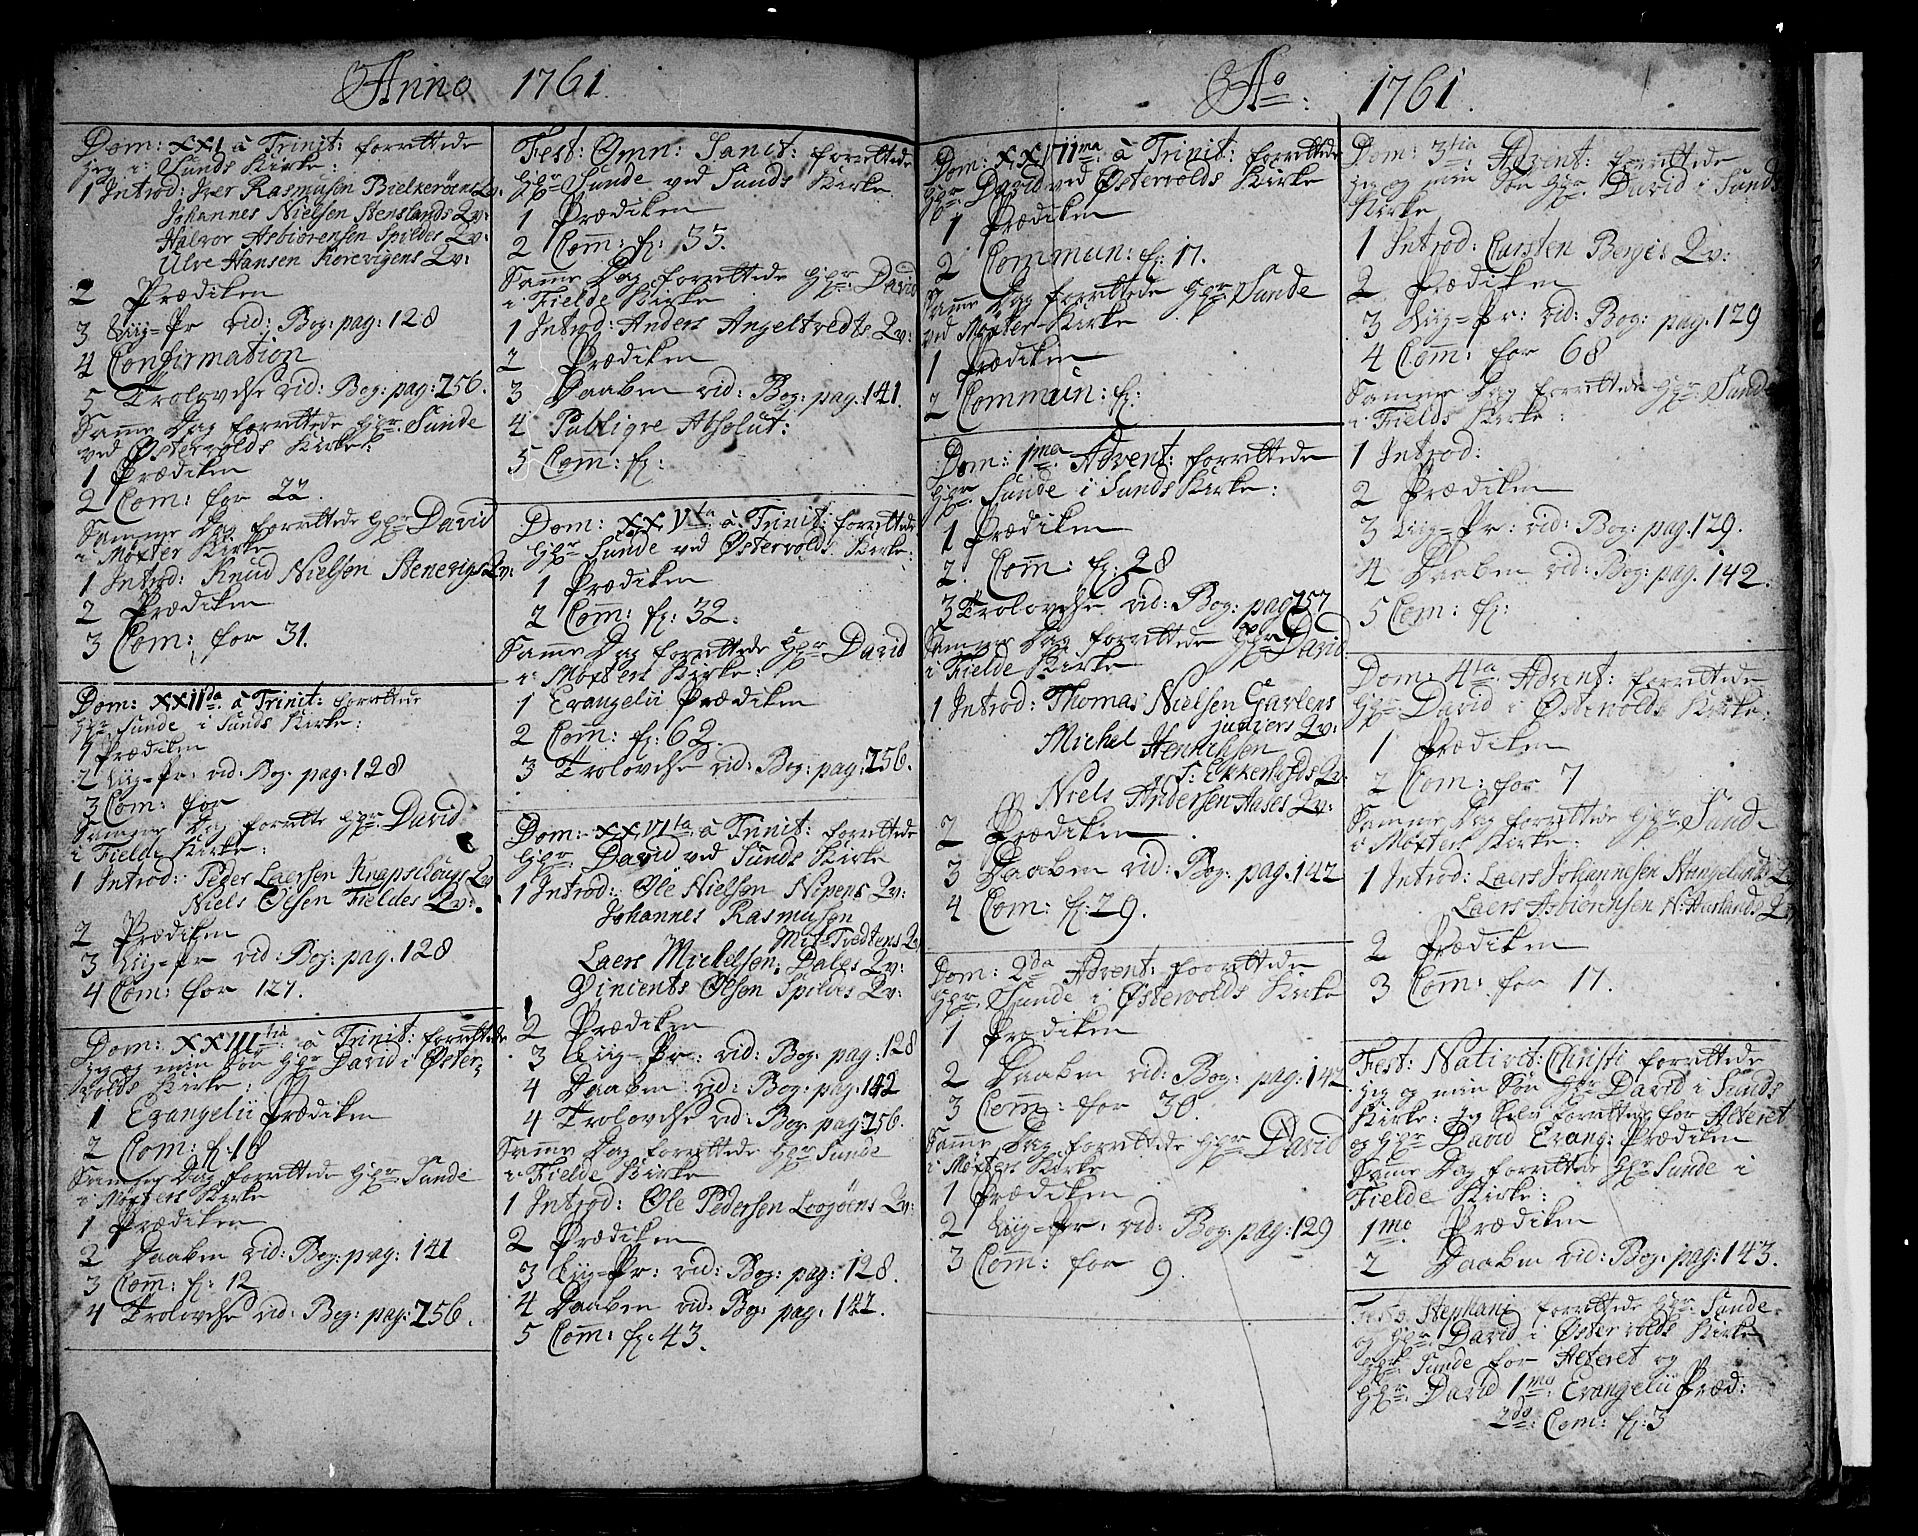 Anno 1761
Dom: XXI à Trinit: forrettede
jeg i Sunds Kirke:
1 Introd: Iver Rasmusøn Bielkerøens Qv:
Johannes Nielsen Stenslands Qv:
Halvor Asbiørensen Spildes Qv:
Ulve Hansen Korevigens Qv:
2 Prædiken
3 Liig=Pr vid: Bog: pag: 128
4 Confirmation
5 Trolovelse vid: Bog: pag: 256.
Samme Dag forrettede Hr. Sunde
ved Østervolds Kirke:
1 Prædiken
2 Com: for 22.
Samme Dag forrettede Hr. David
i Møxter Kirke
1 Introd: Knud Nielsøn Stenevigs Qv:
2 Prædiken
3 Com: for 31.
Dom: XXIIda à Trinit: forrettede
Hr. Sunde i Sunds Kirke:
1 Prædiken
2 Liig=Pr: vid: Bog: pag: 128
3 Com: for
Samme Dag forrette Hr. David
i Fielde Kirke:
1 Introd: Peder Laersen Knapslougs Qv
Niels Olsen Fieldes Qv:
2 Prædiken
3 Liig=Pr vid: Bog: pag. 128
4 Com: for 121.
Dom: XXIIItia à Trinit: forrettede
jeg og min Søn Hr David i Øster-
volds Kirke:
1 Evangelii Prædiken
2 Com: f: 18
Samme Dag forrettede Hr Sunde
i Møxters Kirke
1 Prædiken
2 Daaben vid: Bog: pag: 141
3 Com: f: 12
4 Trolovelse vid: Bog: pag: 256.
Fest: Omn: Sanct: forrettede
Hr Sunde ved Sunds Kirke
1 Prædiken
2 Com: f: 33.
Samme Dag forrettede Hr: David
i Fielde Kirke
1 Introd: Anders Angeltvedts Qv:
2 Prædiken
3 Daaben vid: Bog: pag. 141.
4 Publiqve Absolut:
5 Com: f:
Dom: XXVta à Trinit: forrettede
Hr Sunde ved Østervolds Kirke:
1 Prædiken
2 Com: f: 32.
Samme Dag forrettede Hr David
i Møxters Kirke:
1 Evangelii Prædiken
2 Com: f: 62.
3 Trolovelse vid: Bog: pag: 256.
Dom: XXVIta à Trinit: forrettede
Hr: David ved Sunds Kirke
1 Introd: Ole Nielsøn Nipens Qv:
Johannes Rasmusøn
Mit=Tvedtens Qv
Laers Michelsen Dales Qv:
Vincents Olsen Spildes Qv:
2 Prædiken
3 Liig=Pr: vid: Bog: pag: 128
4 Daaben vid: Bog: pag: 142
4 Trolovelse vid: Bog: pag: 256.
Samme Dag forrettede Hr Sunde
i Fielde Kirke
1 Introd: Ole Pedersen Loogøens Qv:
2 Prædiken
3 Liig=Pr: vid: Bog: pag: 128.
4 Daaben vid: Bog: pag: 142.
5 Com: f: 43.
Ao: 1761.
Dom: XXVIIma: à Trinit: forrettede
Hr: David ved Østervolds Kirke
1 Prædiken
2 Commun: f: 17.
Samme Dag forrettede Hr Sunde
ved Møxter-Kirke
1 Prædiken
2 Commun: f:
Dom: 1ma Advent: forrettede
Hr. Sunde i Sunds Kirke:
1 Prædiken
2. Com: f: 28
3 Trolovelse vid: Bog: pag 257
Samme Dag forrettede Hr David
i Fielde Kirke
1 Introd: Thomas Nielsen Gavlens
Michel Henrichsen
S: Ekkerhofds Qv:
Niels Andersen Aases Qv:
2 Prædiken
3 Daaben vid: Bog: pag. 142
4 Com: f: 29.
Dom: 2da Advent: forrettede
Hr: Sunde i Østervolds Kirke
1 Prædiken
2 Daaben vid: Bog: pag: 142
3 Com: for 30.
Samme Dag forrettede Hr David
i Møxters Kirke
1 Prædiken
2 Liig=Pr: vid: Bog: pag: 129
3 Com: for 9.
Dom: 3tia Advent: forrettede
jeg og min Søn Hr: David i Sunds
Kirke
1 Introd: Carsten Berges Qv:
2 Prædiken
3 Liig=Pr: vid: Bog: pag: 129
4 Com: for 68
Samme Dag forrettede Hr Sunde
i Fields Kirke:
1 Introd:
2 Prædiken
3 Liig=Pr: vid: Bog: pag. 129.
4 Daaben vid: Bog: pag. 142.
5 Com: f:
Dom: 4ta Advent: forrettede
Hr: David i Østervolds Kirke:
1 Prædiken
2 Com: for 7
Samme Dag forrettede Hr Sunde
i Møxters Kirke:
1 Introd: Laers Johannesen Qv
Laers Asbiørensen N: Qv
2 Prædiken
3 Com: for 17.
Fest: Nativit: Christi forrettede
jeg og min Søn Hr David i Sunds
Kirke: jeg selv forrettede for Alteret
og Hr David Evang: Prædiken
Samme Dag forrettede Hr Sunde i
Fielde Kirke:
1mo Prædiken
2 Daaben vid: Bog: pag: 143.
Festo Stephani forrettede Hr: Sunde
og Hr David i Østervolds Kirke
Hr Sunde for Alteret og
Hr David 1mo: Evangelii Præd:
2do: Com: f: 3